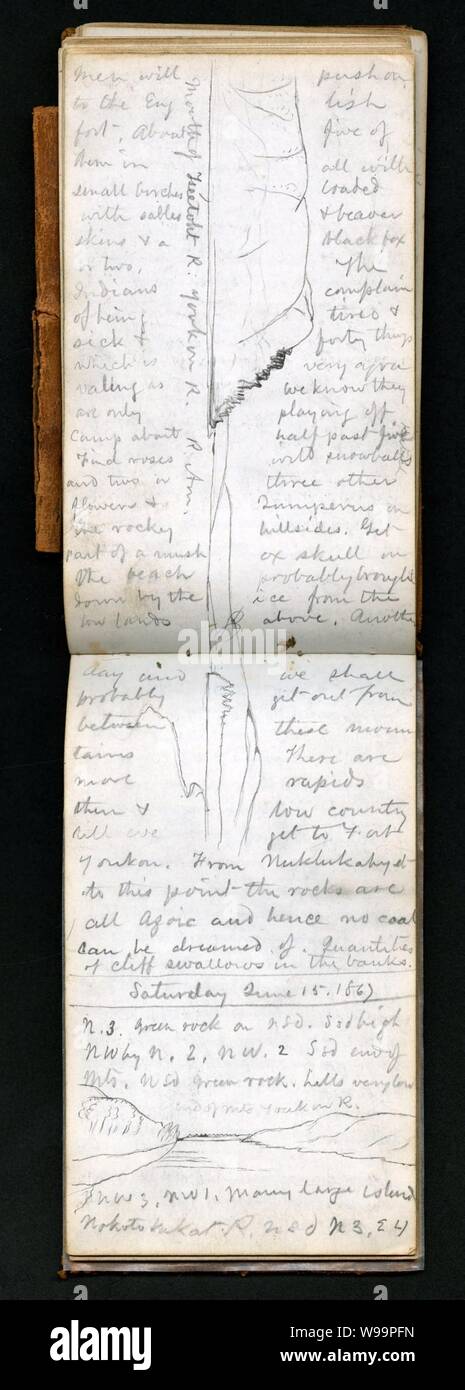 men will push on
to the Eng lish
fort. About five of
them in all with
small birches loaded
with sables & beaver
skins & a black fox
or two. The
Indians complain
of being tired &
sick & forty things
which is very
as we know they
are only playing off.
Camp about half past five
Find roses wild snowballs
and two or three other
flowers & Juniperus on
the rocky hillsides. Get
part of a musk ox skull on
the beach probably brought
down by the ice from the
low lands above. Another
day and we shall
probably get out from
between these moun
tains There are
more rapids
then & low country
till we get to Fort
Youkon. From Nuklukahyet
to this point the rocks are
all Azoic and hence no coal
can be dreamed of. Quantities
of cliff swallows in the banks.
Mouth of R. Youkon R. R. Am.
Saturday June 15. 1867
N. 3. green rock on NSd. SSd high
NW by N. 2, NW. 2 SSd end of
Mts. NSd green rock. hills very low
end of Mts Youkon R.
NW 3, NW 1. Many large island
R. NSd N 3, E 4
alamy
Image ID: W99PFN
www.alamy.com